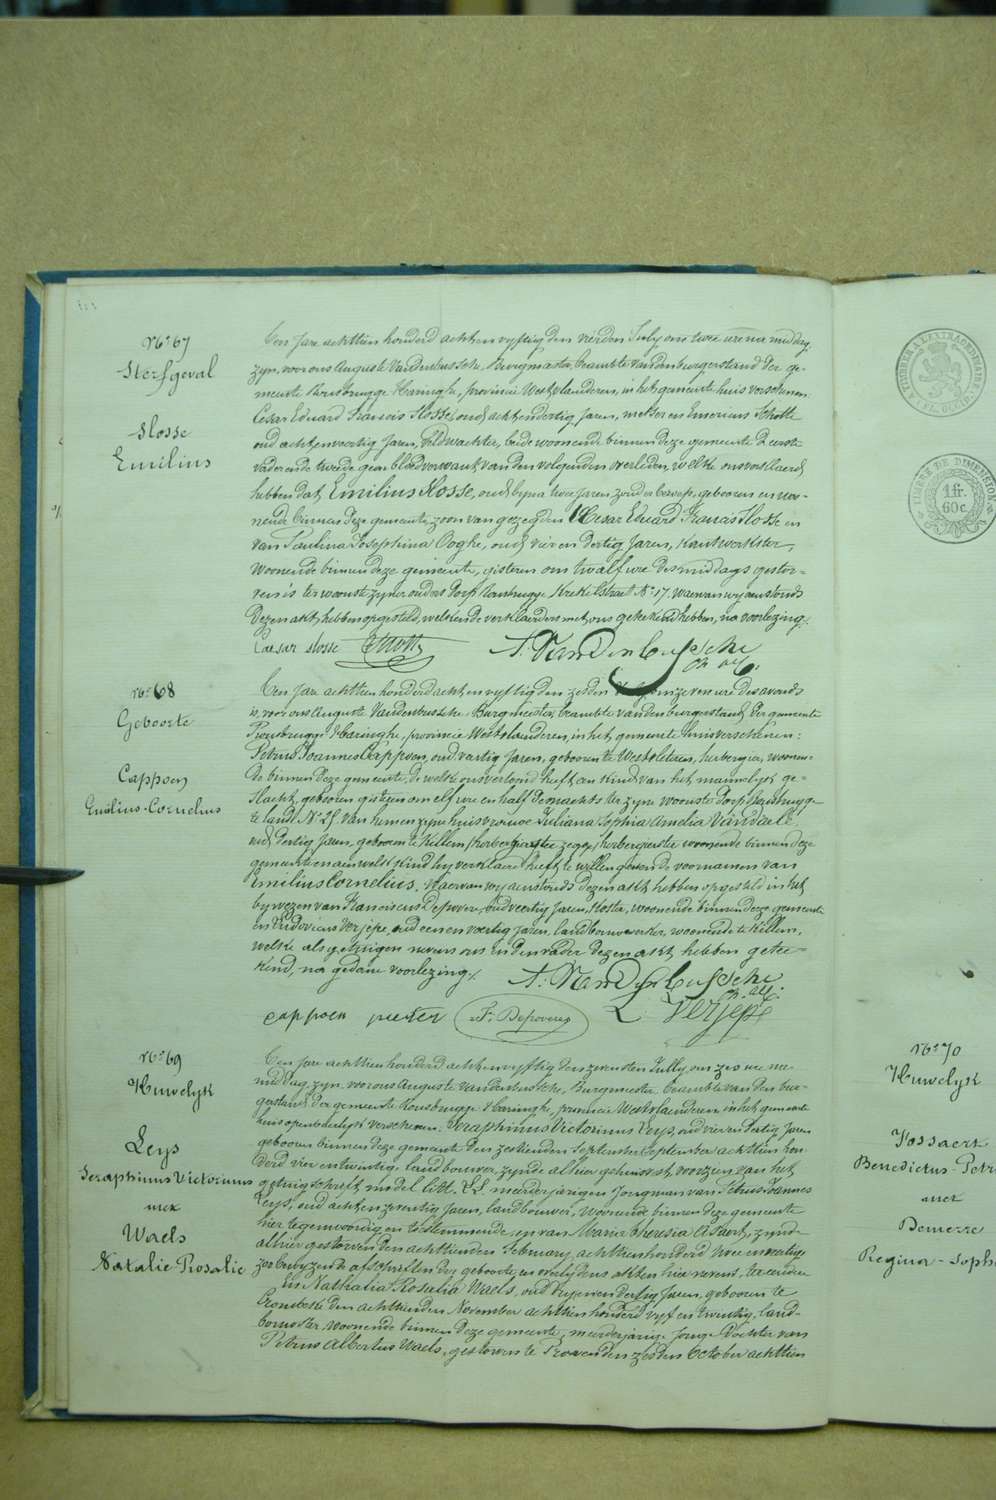 No. 67
Sterfgeval
Slosse
Emilius
Een Jare achttien honderd achtenvyftig den vierden July om twee uren namiddag,
zyn voor ons Auguste Vandenbussche, Burgmeester, beambte van den burgerstand der ge-
meente Rousbrugge Haringhe, provincie Westvlaenderen, in het gemeente huis verschenen
Cesar Eduard Francois Slosse, oud achtendertig Jaren, metser en Emericus Schotte
oud achtenveertig Jaren, veldwachter, beide woonende binnen deze gemeente D'eerste
vader en de tweede geen bloedverwant van den volgenden overleden, welke ons verklaerd
hebben dat Emilius Slosse, oud byna twee Jaren zonder beroep, gebooren en woo-
nende binnen deze gemeente, zoon van gezegden Cesar Eduard Francois Slosse en
van Paulina Josephina Ooghe, oud vier en dertig Jaren, Kantwerkster,
woonende binnen deze gemeente, gisteren om twalf ure des middags gestor-
ven is ter woonste zyner ouders dorp Rousbrugge Krekelstraet No. 17. Waervan wy aenstonds
dezen akt hebben opgesteld, welken de verklaerders met ons geteekend hebben, na voorlezing.
Caesar Slosse ESchotte A. Vandenbussche
No. 68
Geboorte
Cappoen
Emilius-Cornelius
Een Jare achttien honderd achtenvyftig den zesden July om zeven ure des avonds
is, voor ons Auguste Vandenbussche, Burgmeester, beambte van den burgerstand der gemeente
Rousbrugge Haringhe, provincie Westvlaenderen, in het gemeente huis verschenen:
Petrus Joannes Cappoen, oud vertig Jaren, gebooren te Westvleteren, herbergier, woonen-
de binnen deze gemeente, de welke ons vertoond heeft een kind van het mannelyk ge-
slacht, gebooren gisteren om elf ure en half des nachts ter zyne woonste dorp Rousbrugge
te land No. 25, van hem en zyne huisvrouwe Juliana Sophia Amelia Vandaele
oud dertig Jaren, gebooren te Killem, woonende binnen deze
gemeente en aen welk kind hy verklaerd heeft te willen geven de voornamen van
Emilius Cornelius. Waervan wy aenstonds dezen akt hebben opgesteld in het
bywezen van Franciscus Depovere, oud veertig Jaren, Koster, woonende binnen deze gemeente
en Ludovicus Verjepe, oud een en veertig Jaren, landbouwwerker, woonende te Killem,
welke als getuigen nevens ons en den vader dezen akt hebben getee-
kend, na gedane voorlezing.
A. Vandenbussche
cappoen pieter F. Depovere L Verjepe
No. 69
Huwelyk
Leys
Seraphinus Victorinus
met
Waels
Natalie Rosalie
Een Jare achttien honderd achtenvyftig den zevensten July, om zes ure na-
middag, zyn voor ons Auguste Vandenbussche, Burgmeester, beambte van den bur-
gerstand der gemeente Rousbrugge Haringhe, provincie Westvlaenderen in het gemeente
huis openbaerlyk verschenen: Seraphinus Victorinus Leys, oud vier en dertig Jaren
gebooren binnen deze gemeente den zestienden September achttien hon-
derd vier en twintig, landbouwer, zynde alhier gehuisvest, voorzien van het
getuigschrift model litt. LL. meerderjarigen Jongman van Petrus Joannes
Leys, oud achtenzeventig Jaren, landbouwer, woonende binnen deze gemeente
hier tegenwoordig en toestemmende, en van Maria Theresia Assaert, zynde
alhier gestorven den achttienden February achttien honderd twee en veertig,
En Nathalia Rosalia Waels, oud dryendertig Jaren, gebooren te
Crombeke den achttienden November achttien honderd vyf en twintig, land-
bouwster woonende binnen deze gemeente, meerderjarige Jonge dochter van
Petrus Albertus Waels, gestorven te Proven den zesden October achttien
No. 70
Huwelyk
Fossaert
Benedictus-Petr
met
Demerre
Regina-Soph
TIMBRE A L'EXTRAORDINAIRE
FL. OCCID.
TIMBRE DE DIMENSION
1 fr.
60 c.